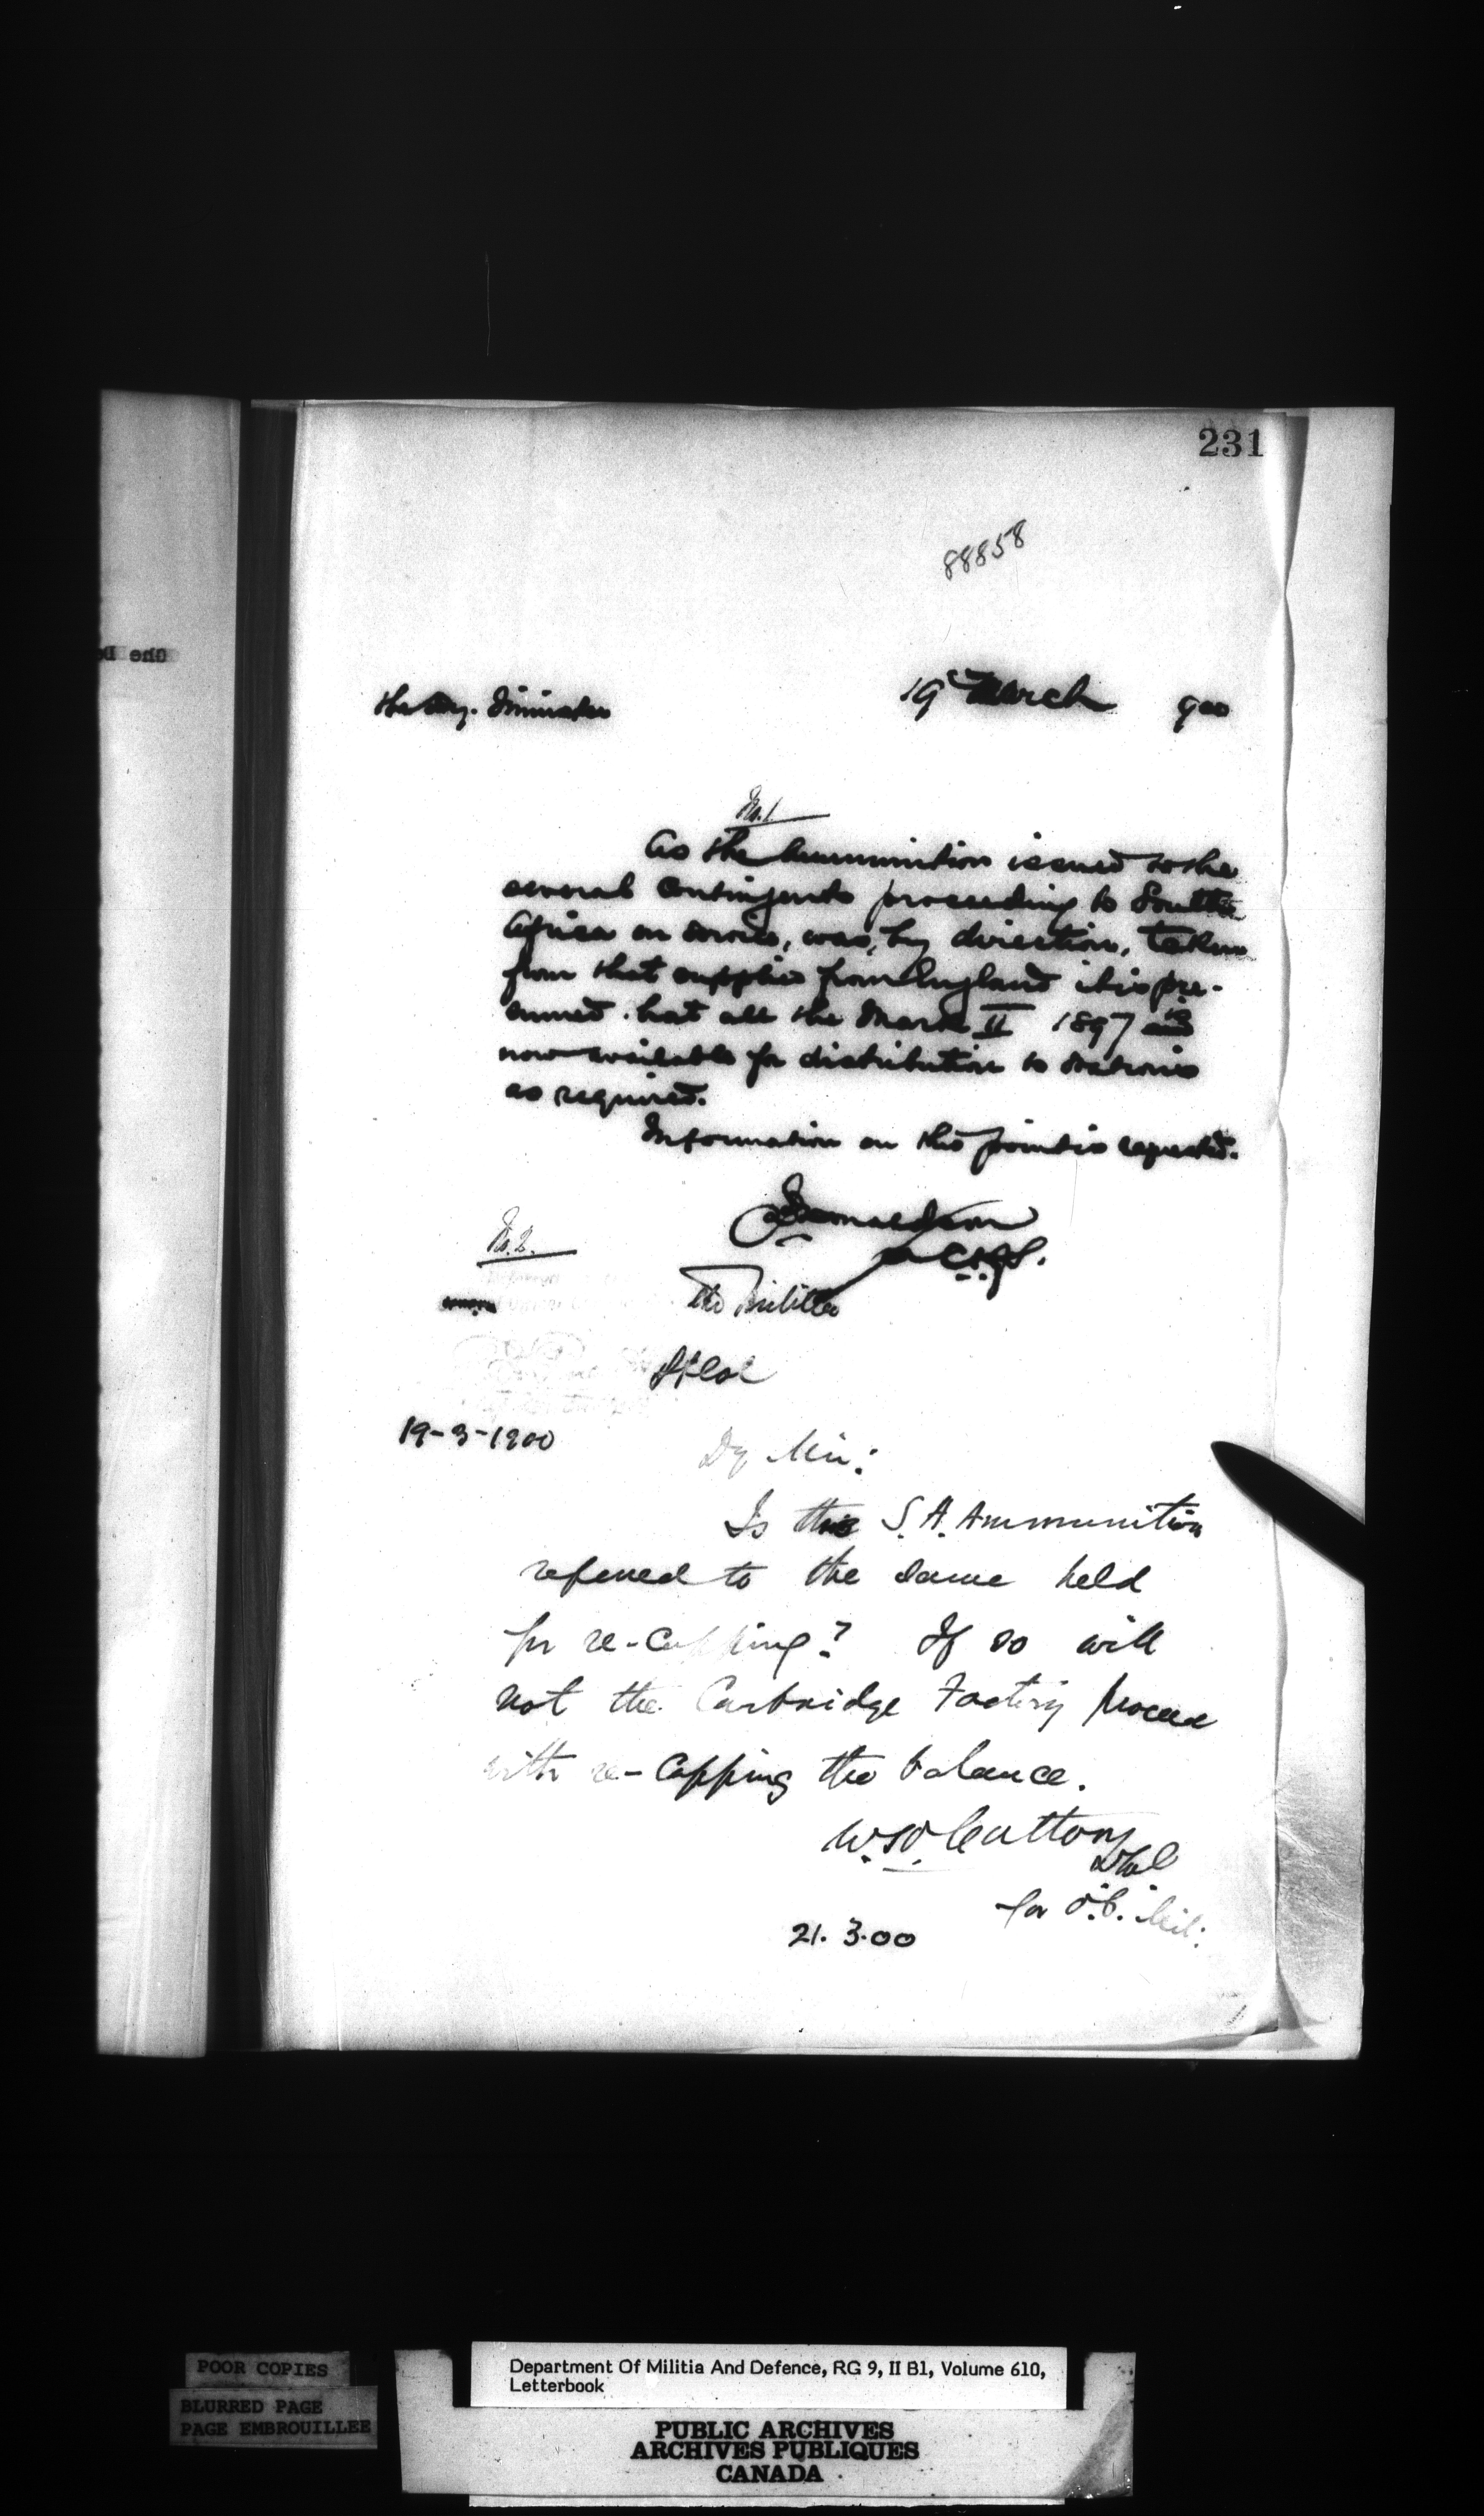 231
88858
19th March 900
The Dy. Minister
No. 1
As the Ammunition issued to the
several Contingents proceeding to South
Africa on service, was, by direction, taken
from that supplied from England it is pre-
sumed that all the Mark II 1897 is
now available for distribution to stations
as required.
Information on this point is requested.
Donaldson
for C.S.S.
No. 2.
19-3-1900
Dy Min:
Is this S. A. Ammunition
referred to the same held
for re-capping? If so will
not the Cartridge Factory proceed
with re-capping the balance.
W. Cutton
for
21. 3.00
POOR COPIES
BLURRED PAGE
PAGE EMBROUILLEE
Department Of Militia And Defence, RG 9, II B1, Volume 610,
Letterbook
PUBLIC ARCHIVES
ARCHIVES PUBLIQUES
CANADA